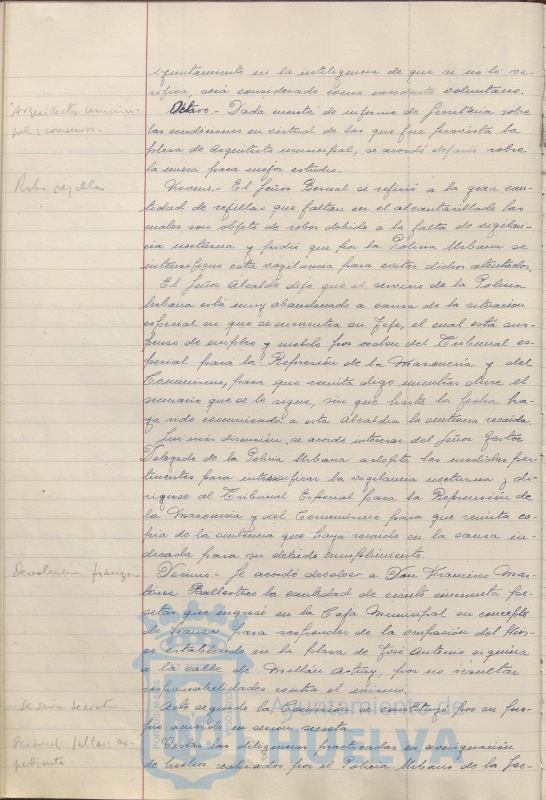 Ayuntamiento en la inteligencia de que si no lo ve-
rifica, será considerado como excedente voluntario.
Arquitecto munici-
pal: concurso.
Octavo.- Dada cuenta de informe de Secretaria sobre
las condiciones en virtud de las que fue provista la
plaza de Arquitecto municipal, se acordó dejarlo sobre
la mesa para mejor estudio.
Robo rejillas
Noveno.- El Señor Bernal se refirió a la gran can-
tidad de rejillas que faltan en el alcantarillado las
cuales son objeto de robos debido a la falta de vigilan-
cia nocturna y pidió que por la Policia Urbana se
intensifique esta vigilancia para evitar dichos atentados.
El Señor Alcalde dijo que el servicio de la Policia
Urbana está muy abandonado a causa de la situacion
especial en que se encuentra su Jefe, el cual está sus-
penso de empleo y sueldo por orden del Tribunal es-
pecial para la Represión de la Masoneria y del
Comunismo, para que remita digo mientras dure el
sumario que se le sigue, sin que hasta la fecha ha-
ya sido comunicada a esta Alcaldia la sentencia recaida.
Sin más discusión, se acordó interesar del Señor Gestor
Delegado de la Policia Urbana adopte las medidas per-
tinentes para intensificar la vigilancia nocturna y di-
rigirse al Tribunal Especial para la Represión de
la Masoneria y del Comunismo para que remita co-
pia de la sentencia que haya recaido en la causa in-
dicada para su debido cumplimiento.
Devolución fianza
Decimo.- Se acordó devolver a Don Francisco Mar-
tinez Ballesteros la cantidad de ciento cincuenta pe-
setas que ingresó en la Caja Municipal en concepto
de fianza para responder de la ocupación del Kios-
co establecido en la plaza de José Antonio esquina
a la calle de Millán Astray, por no resultar
responsabilidades contra el mismo.
Sesión secreta
Acto seguido la Comisión se constituyó por su pro-
pio acuerdo en sesión secreta.
Personal: faltas: ex-
pediente
Vistas las diligencias practicadas en averiguación
de hechos realizados por el Policia Urbano de la Sec-
Ayuntamiento de
HUELVA